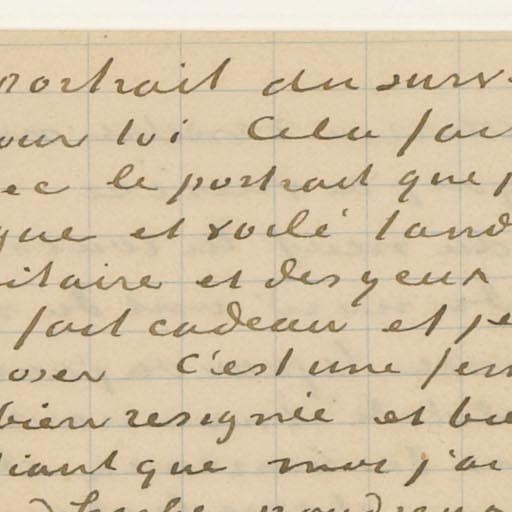 portrait du surv
pour toi Cela fai
ec le portrait que j
que et voilé tand
itaire et des yeux
fait cadeau et je
oser C'est une fem
bien resignée et bie
iant que moi j'ai